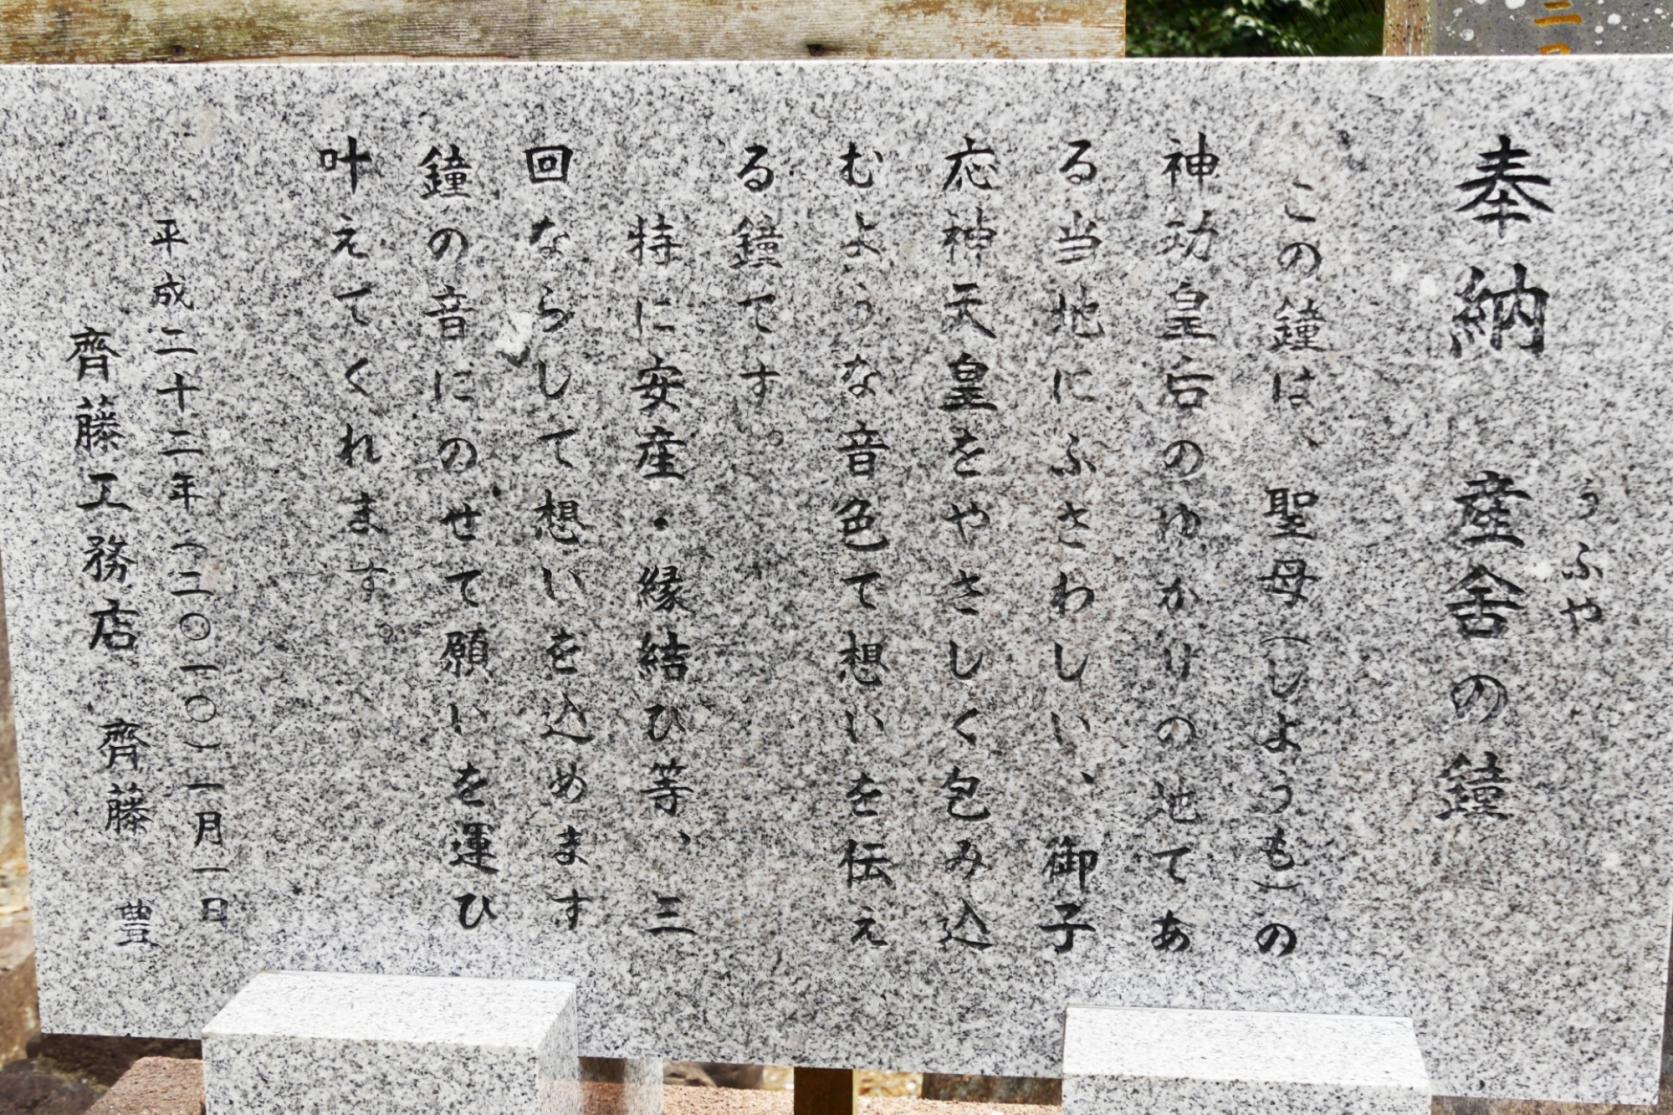 奉納 産舎の鐘
うふや
この鐘は、聖母(しようも)の
神功皇后のゆかりの地であ
る当地にふさわしい、御子
応神天皇をやさしく包み込
むような音色で想いを伝え
る鐘です。
特に安産・縁結び等、三
回ならして想いを込めます
鐘の音にのせて願いを運び
叶えてくれます。
平成二十二年(二〇一〇)一月一日
齊藤工務店 齊藤 豊